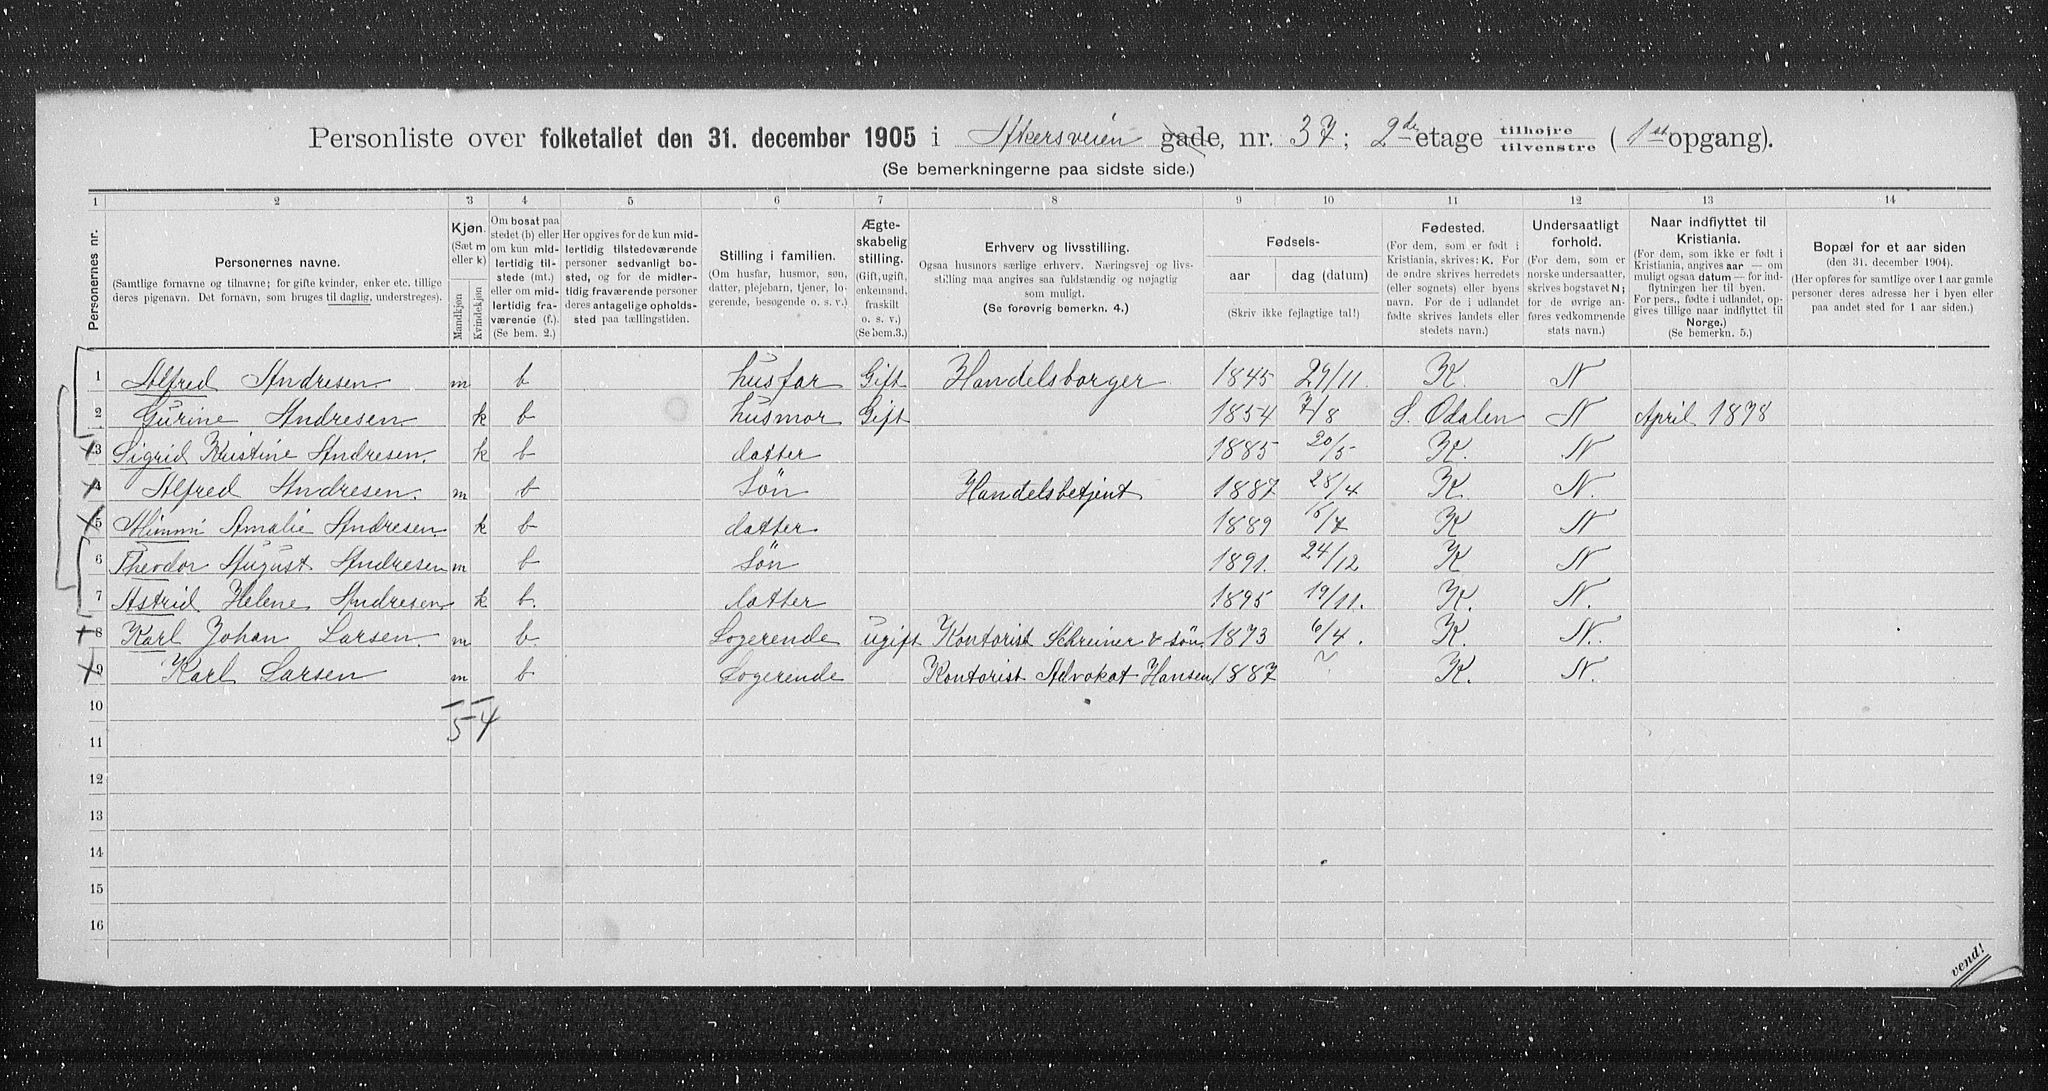 Personliste over folketallet den 31. december 1905 i Akersveien gade, nr. 37; 2de etage tilhøjre tilvenstre (1ste opgang).
(Se bemerkningerne paa sidste side.)
1 2 3 4 5 6 7 8 9 10 11 12 13 14
Personernes nr.
Personernes navne.
(Samtlige fornavne og tilnavne; for gifte kvinder, enker etc. tillige deres pigenavn. Det fornavn, som bruges til daglig, understreges).
Kjøn.
(Sæt m eller k)
Mandkjøn
Kvindekjøn
Om bosat paa stedet (b) eller om kun midlertidig tilstede (mt.) eller om midlertidig fraværende (f.). (Se bem. 2.)
Her opgives for de kun midlertidig tilstedeværende personer sedvanligt bosted, og for de midlertidig fraværende personer deres antagelige opholdssted paa tællingstiden.
Stilling i familien.
(Om husfar, husmor, søn, datter, plejebarn, tjener, logerende, besøgende o. s. v.)
Ægteskabelig stilling.
(Gift, ugift, enkemand, fraskilt o. s. v.)
(Se bem. 3.)
Erhverv og livsstilling.
Ogsaa husmors særlige erhverv. Næringsvej og livsstilling maa angives saa fuldstændig og nøjagtig som muligt.
(Se forøvrig bemerkn. 4.)
Fødsels-
aar dag (datum)
(Skriv ikke fejlagtige tal!)
Fødested.
(For dem, som er født i Kristiania, skrives: K. For de øndre skrives herredets (eller sognets) eller byens navn. For de i udlandet fødte skrives landets eller stedets navn.)
Undersaatligt forhold.
(For dem, som er norske undersaatter, skrives bogstavet N; for de øvrige anføres vedkommende stats navn.)
Naar indflyttet til Kristiania.
(For dem, som ikke er født i Kristiania, angives aar — om muligt ogsaa datum — for indflytningen her til byen. For pers., fødte i udlandet, opgives tillige naar indflyttet til Norge.)
(Se bemerkn. 5.)
Bopæl for et aar siden
(den 31. december 1904).
(Her opføres for samtlige over 1 aar gamle personer deres adresse her i byen eller paa andet sted for 1 aar siden.)
1 Alfred Andresen m b husfar Gift Handelsborger 1845 29/11. K. N
2 Gurine Andresen k b husmor Gift 1854 7/8 S. Odalen N April 1878
3 Sigrid Kristine Andresen. k b datter 1885 20/5 K. N
4 Alfred Andresen. m b Søn Handelsbetjent 1887 28/4 K. N.
5 Mimmi Amalie Andresen k b datter 1889 K N
6 Theodor August Andresen m b Søn 1891. 24/12 K N
7 Astrid Helene Andresen k b. datter 1895 19/11. K. N.
8 Karl Johan Larsen. m b. Logerende ugift Kontorist Schreiner & søn. 1873 6/4. K. N.
9 Karl Larsen m b Logerende Kontorist Advokat Hansen 1887 K. N.
10
5 4
11
12
13
14
15
16
vend!